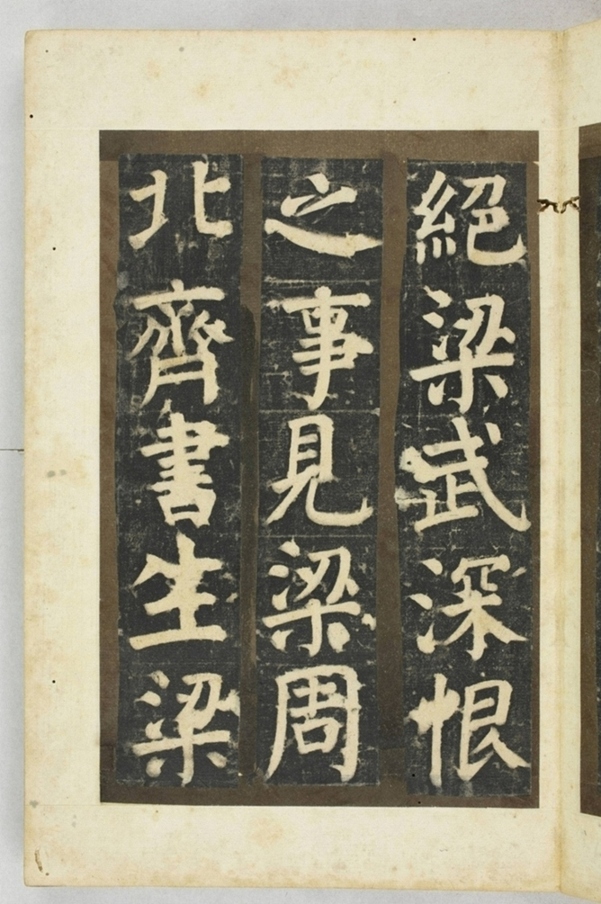 絕梁武深恨
之事見梁周
北齊書生梁